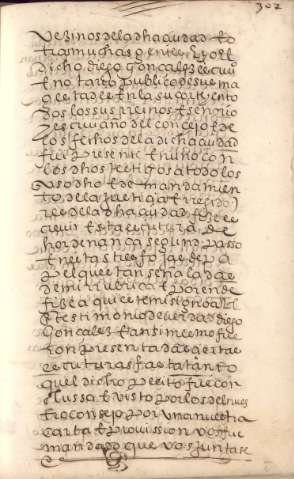 302
vezinos de la dha ciudad e o
tra mucha gente e yo el
dicho diego gonçalez escriv
no tario publico de su ma
gestad e en la su corte y en to
dos los sus rreinos e señorio
s escrivano del conçejo e de
los fechos de la dicha ciudad
fui presente en uno con
los dhos testigos a todo los
uso dho e de mandamien
to de la justiçia e rregido
res de la dha ciudad fize es
crevir esta escritura de
hordenança segund paso
en estas treynta fojas de pa
pel que estan señaladas
de mi rubrica e por ende
fize aqui este mi signo a tal
en testimonio de verdad diego
gonçalez e ansimesmo fue
con presentadas çiertas
escrituras fasta tanto
quel dicho pleito fue con
cluso e visto por los del nues
tro consejo por una nuestra
carta e provision vos fue
mandado que vos juntase